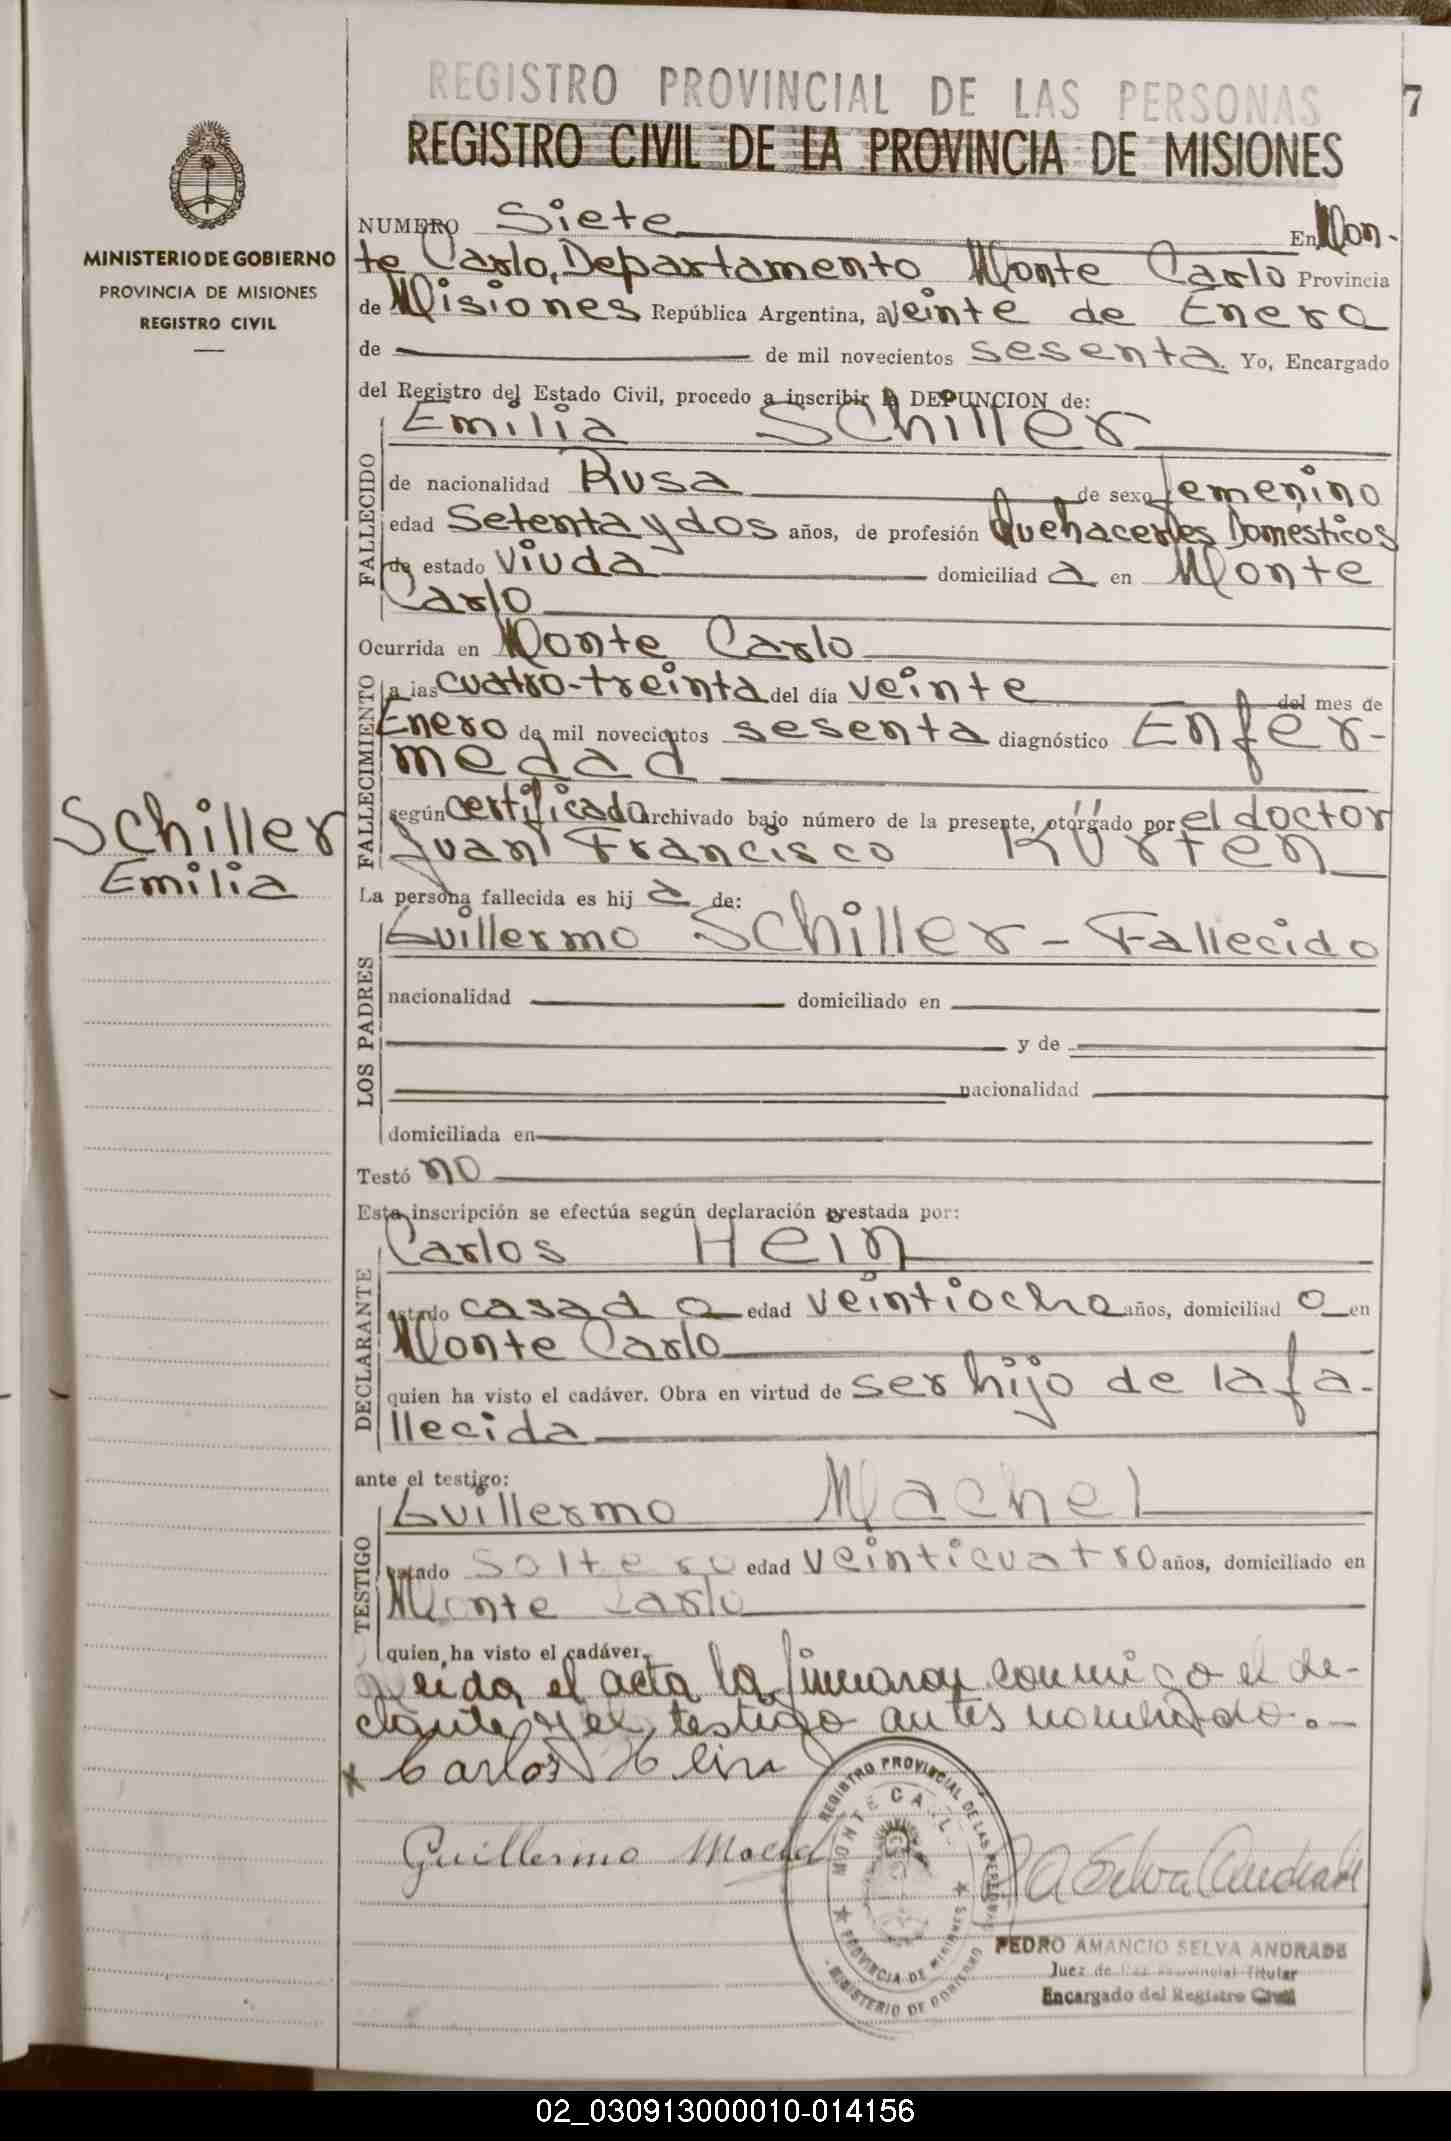 REGISTRO PROVINCIAL DE LAS PERSONAS
7
REGISTRO CIVIL DE LA PROVINCIA DE MISIONES
MINISTERIO DE GOBIERNO
PROVINCIA DE MISIONES
REGISTRO CIVIL
NUMERO Siete En Mon-
te Carlo, Departamento Monte Carlo Provincia
de Misiones República Argentina, a veinte de Enero
de de mil novecientos sesenta. Yo, Encargado
del Registro del Estado Civil, procedo a inscribir la DEFUNCION de:
FALLECIDO
Emilia Schiller
de nacionalidad Rusa de sexo femenino
edad Setenta y dos años, de profesión Quehaceres Domésticos
de estado viuda domiciliad a en Monte
Carlo
Ocurrida en Monte Carlo
FALLECIMIENTO
a las cuatro-treinta del día veinte del mes de
Enero de mil novecientos sesenta diagnóstico Enfer-
medad
según certificado archivado bajo número de la presente, otorgado por el doctor
Juan Francisco Kürten
Schiller
Emilia
La persona fallecida es hij a de:
LOS PADRES
Guillermo Schiller - Fallecido
nacionalidad domiciliado en
y de
nacionalidad
domiciliada en
Testó no
Esta inscripción se efectúa según declaración prestada por:
DECLARANTE
Carlos Hein
estado casad o edad veintiocho años, domiciliad o en
Monte Carlo
quien ha visto el cadáver. Obra en virtud de ser hijo de la fa-
llecida
ante el testigo:
TESTIGO
Guillermo Machel
estado Soltero edad veinticuatro años, domiciliado en
Monte Carlo
quien ha visto el cadáver.
Leida el acta la firmaron conmigo el de-
clarante y el testigo antes nombrado.-
x Carlos Hein
Guillermo
P A Selva Andrade
REGISTRO PROVINCIAL DE LAS PERSONAS
MONTE CARLO
PROVINCIA DE MISIONES
MINISTERIO DE GOBIERNO
PEDRO AMANCIO SELVA ANDRADE
Juez de Paz Provincial Titular
Encargado del Registro Civil
02_030913000010-014156